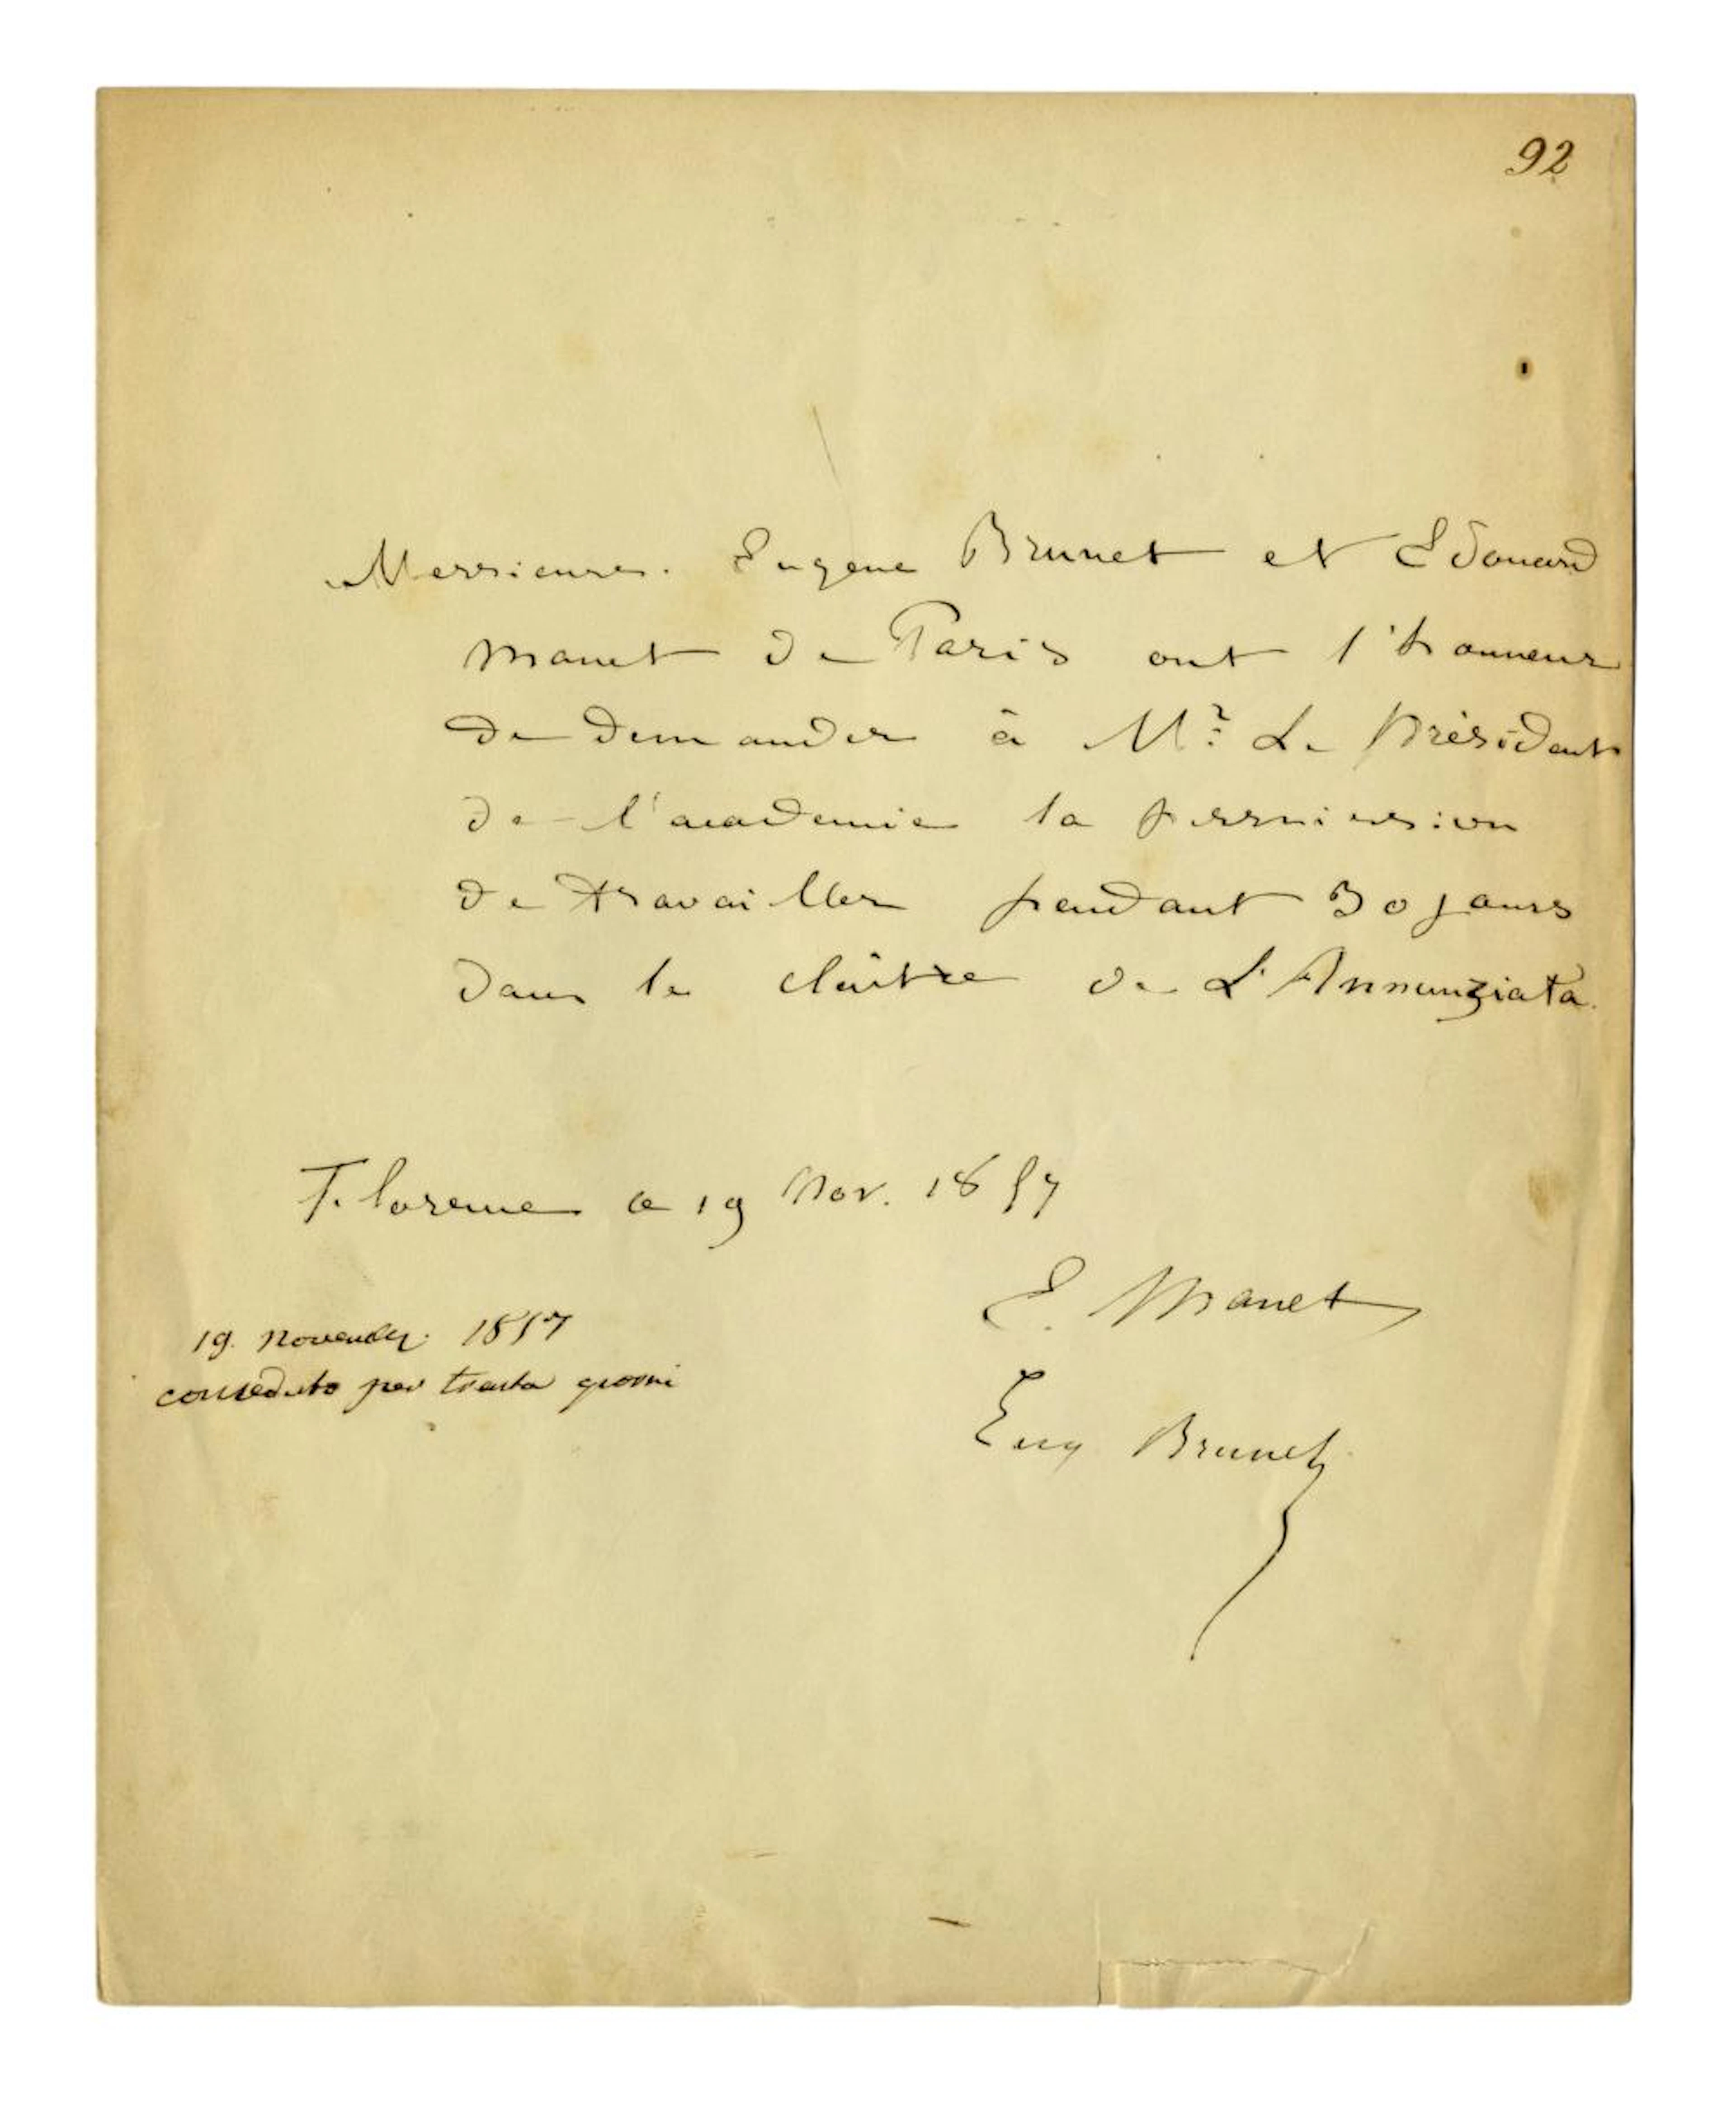 92
Messieurs. Eugene Brunet et Edouard
Manet de Paris ont l'honneur
de demander à Mr. Le Président
de l'academie la permission
de travailler pendant 30 jours
dans le cloître de L'Annunziata.
Florence ce 19 Nov. 1857
E. Manet
19. Novembr. 1857
Eug Brunet
conceduto per trenta giorni